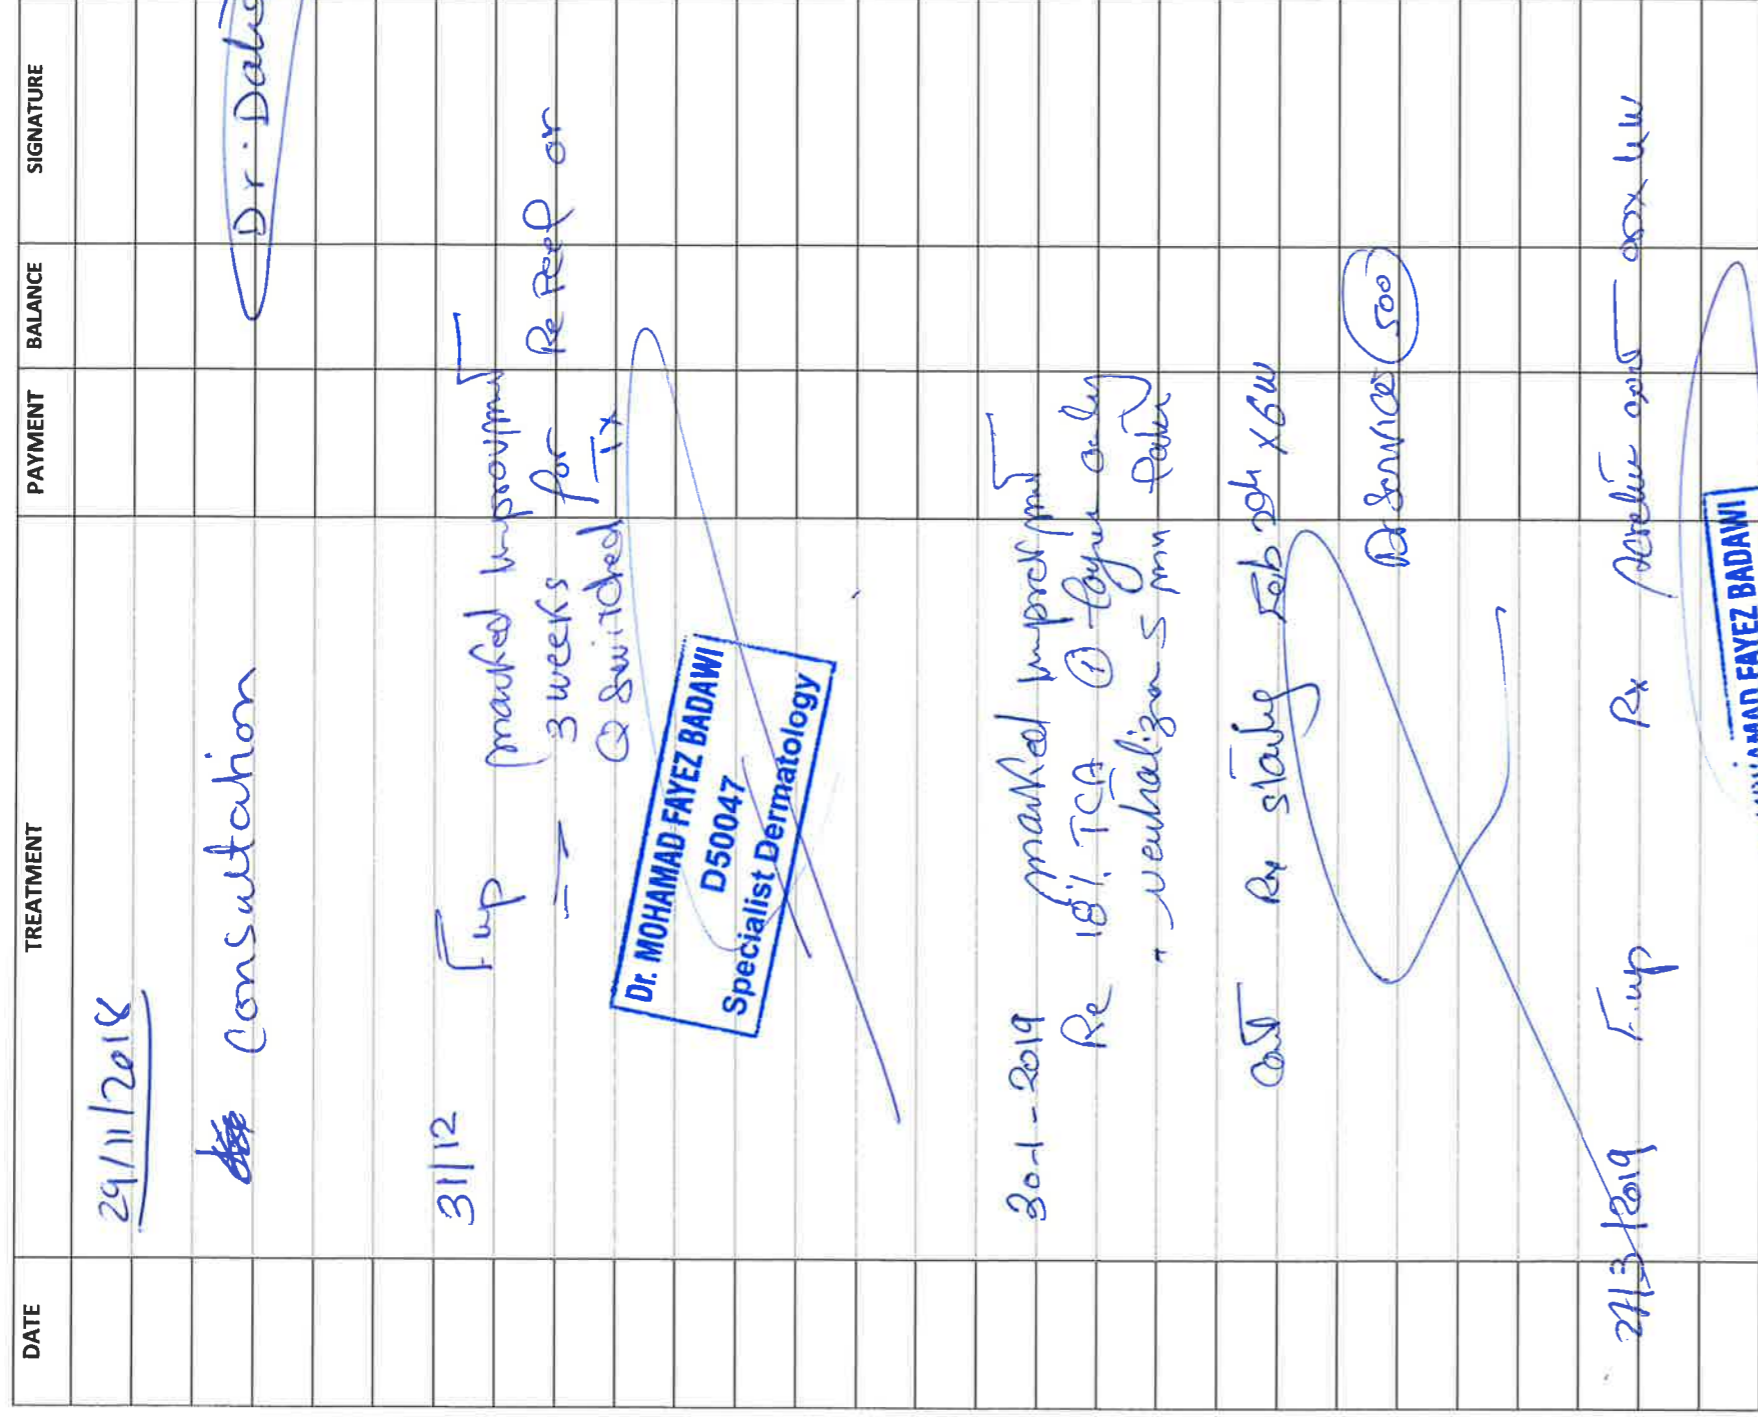 DATE TREATMENT PAYMENT BALANCE SIGNATURE
29/11/2018
Consultation Dr. Dali
31/12 F up marked improvment
3 weeks for RePeel or
Q Switched Tx
Dr. MOHAMAD FAYEZ BADAWI
D50047
Specialist Dermatology
30-1-2019 marked improvment
Re 18% TCA ① layer only
neutralizn 5 min
Cont Rx starting Feb 20th x 6w
Dr Service 500
27/3/2019 F.up Rx
MOHAMAD FAYEZ BADAWI